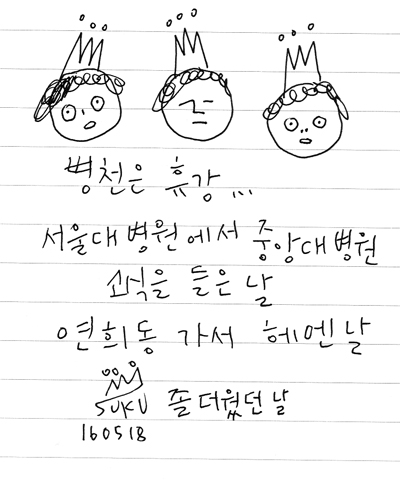 병천은 휴강...
서울대병원에서 중앙대병원
소식을 들은 날
연희동 가서 헤멘날
SUKU 졸 더웠던 날
160518